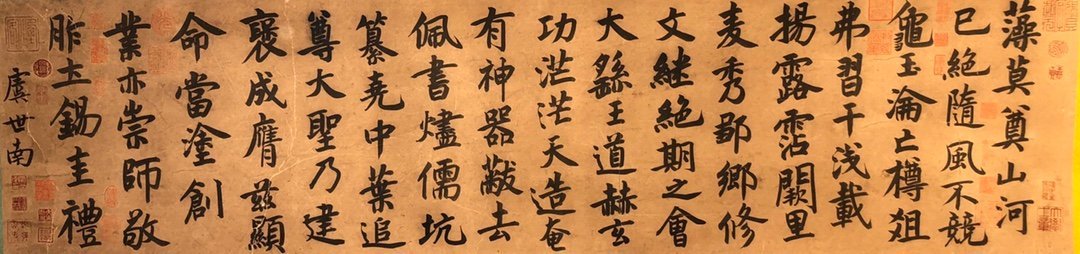 藻莫奠山河
已絶隨風不競
龜玉淪亡樽俎
弗習干浅載
揚露霑闕里
麦秀鄒鄉修
文継絶期之會
大繇王道赫玄
功茫茫天造奄
有神器黻去
佩書燼儒坑
纂堯中葉追
尊大聖乃建
褒成膺茲顯
命當塗創
業亦崇師敬
胙土錫圭禮
虞世南